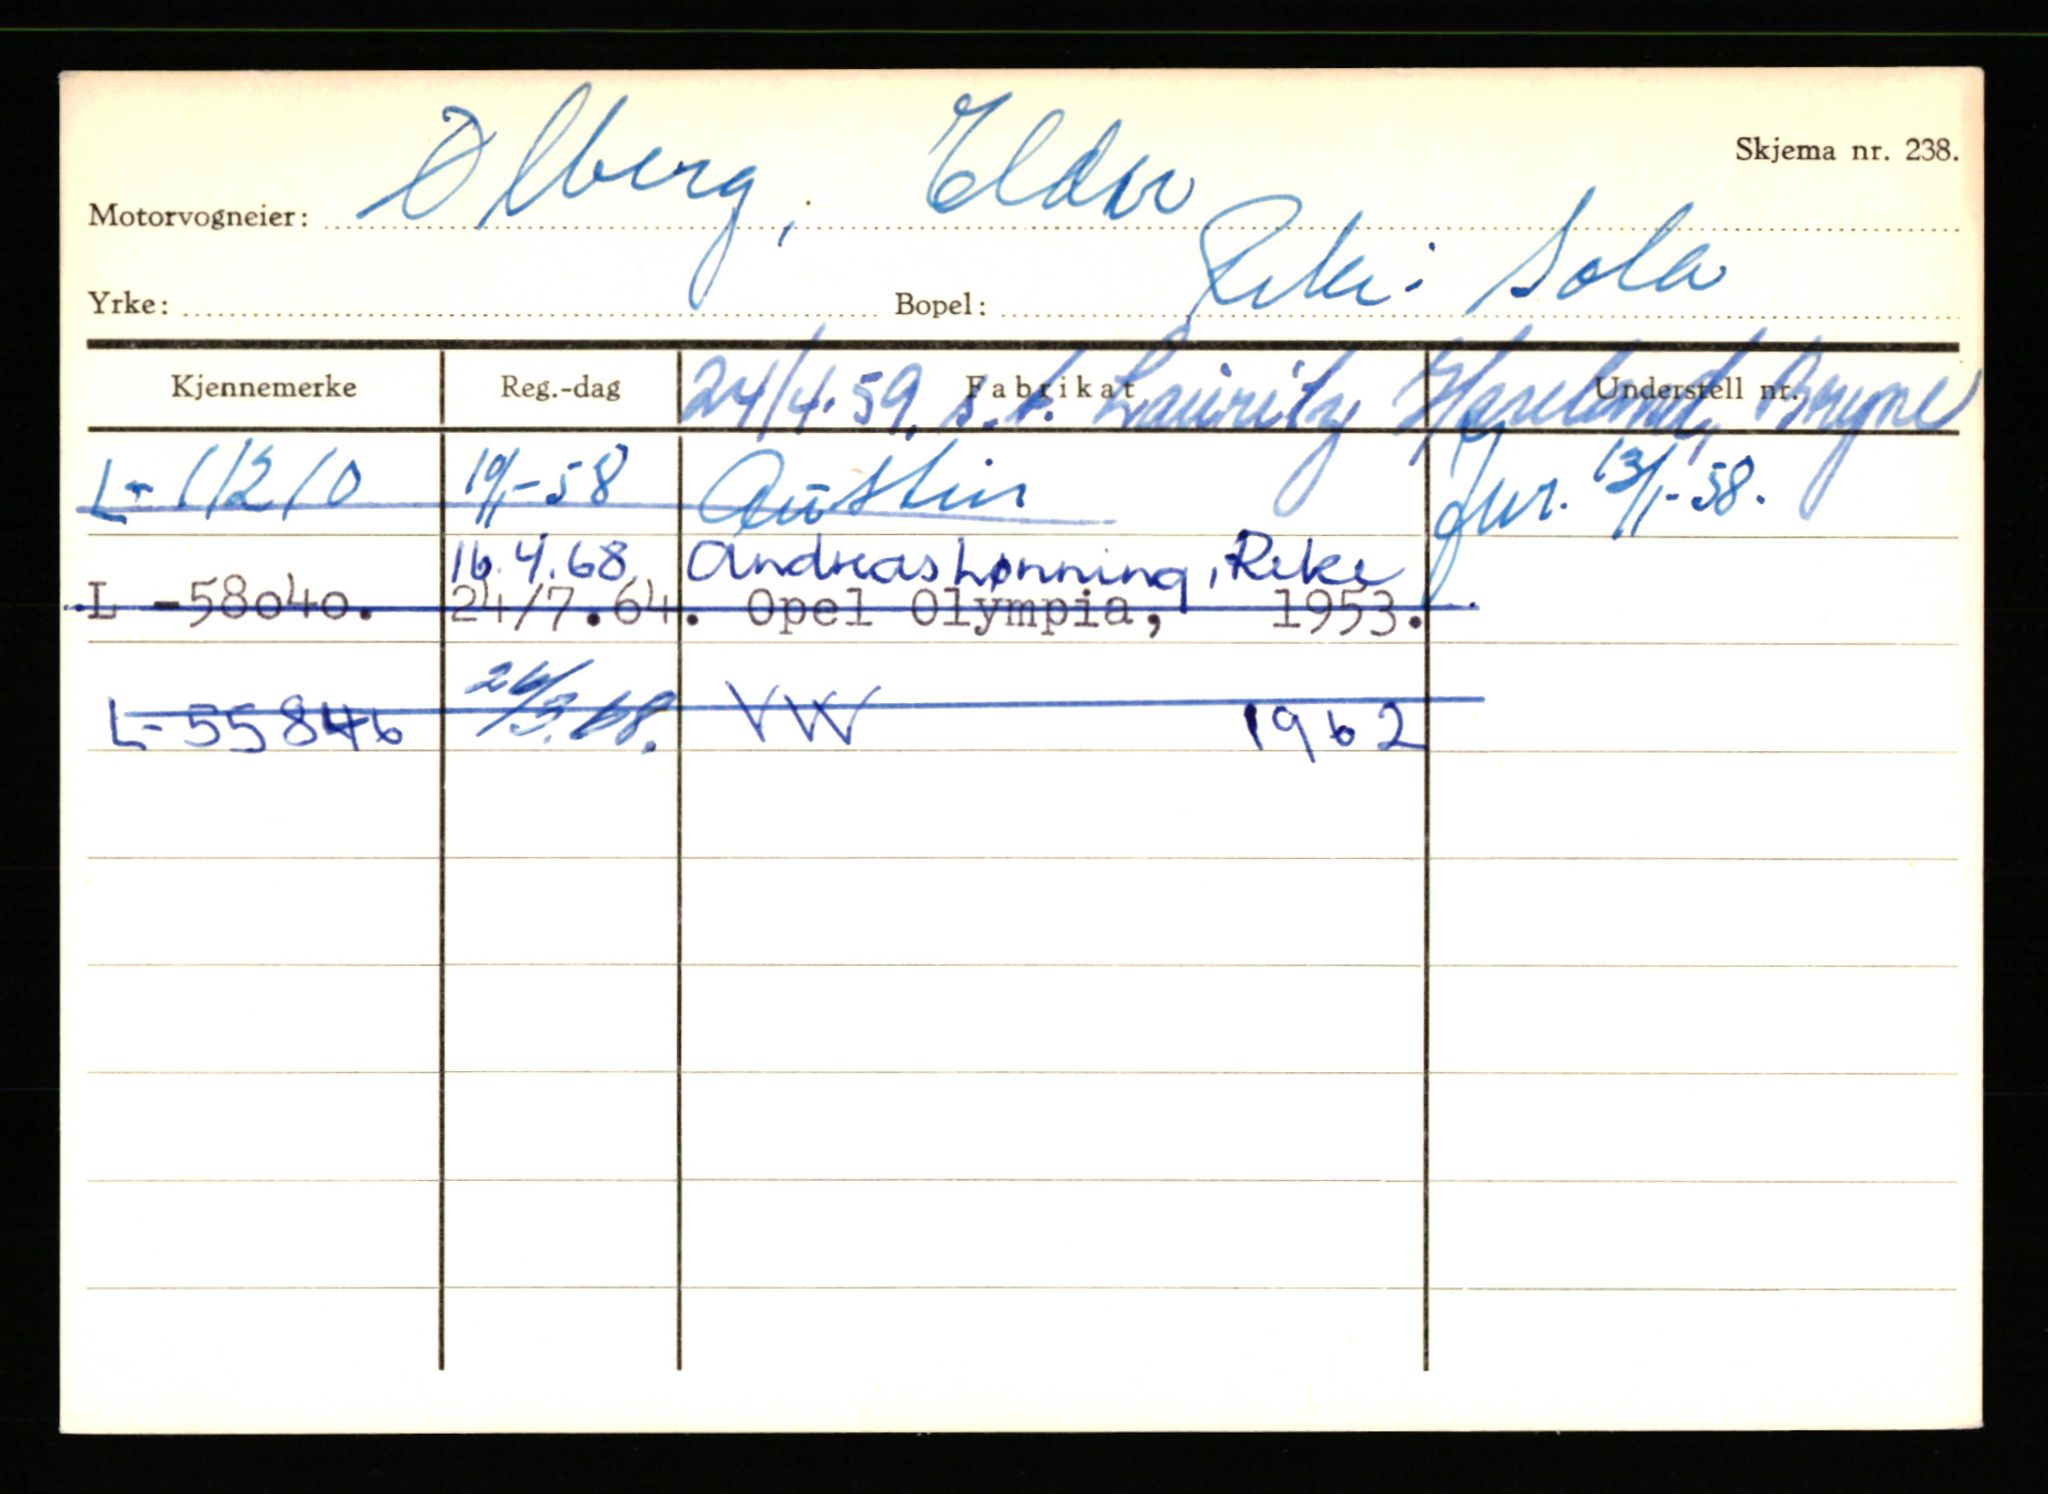 Skjema nr. 238.
Motorvogneier: Ølberg, Eldar
Yrke: Bopel: Reke. Sola
Kjennemerke Reg.-dag Fabrikat Understell nr.
24/4.59, s. t. Lauritz Bryne
L-11210 10/1-58 Austin 13/1-58.
16.4.68 Andreas Lønning, Reke
L -58040. 24/7.64. Opel Olympia, 1953.
L-55846 26/3.68. VW 1962